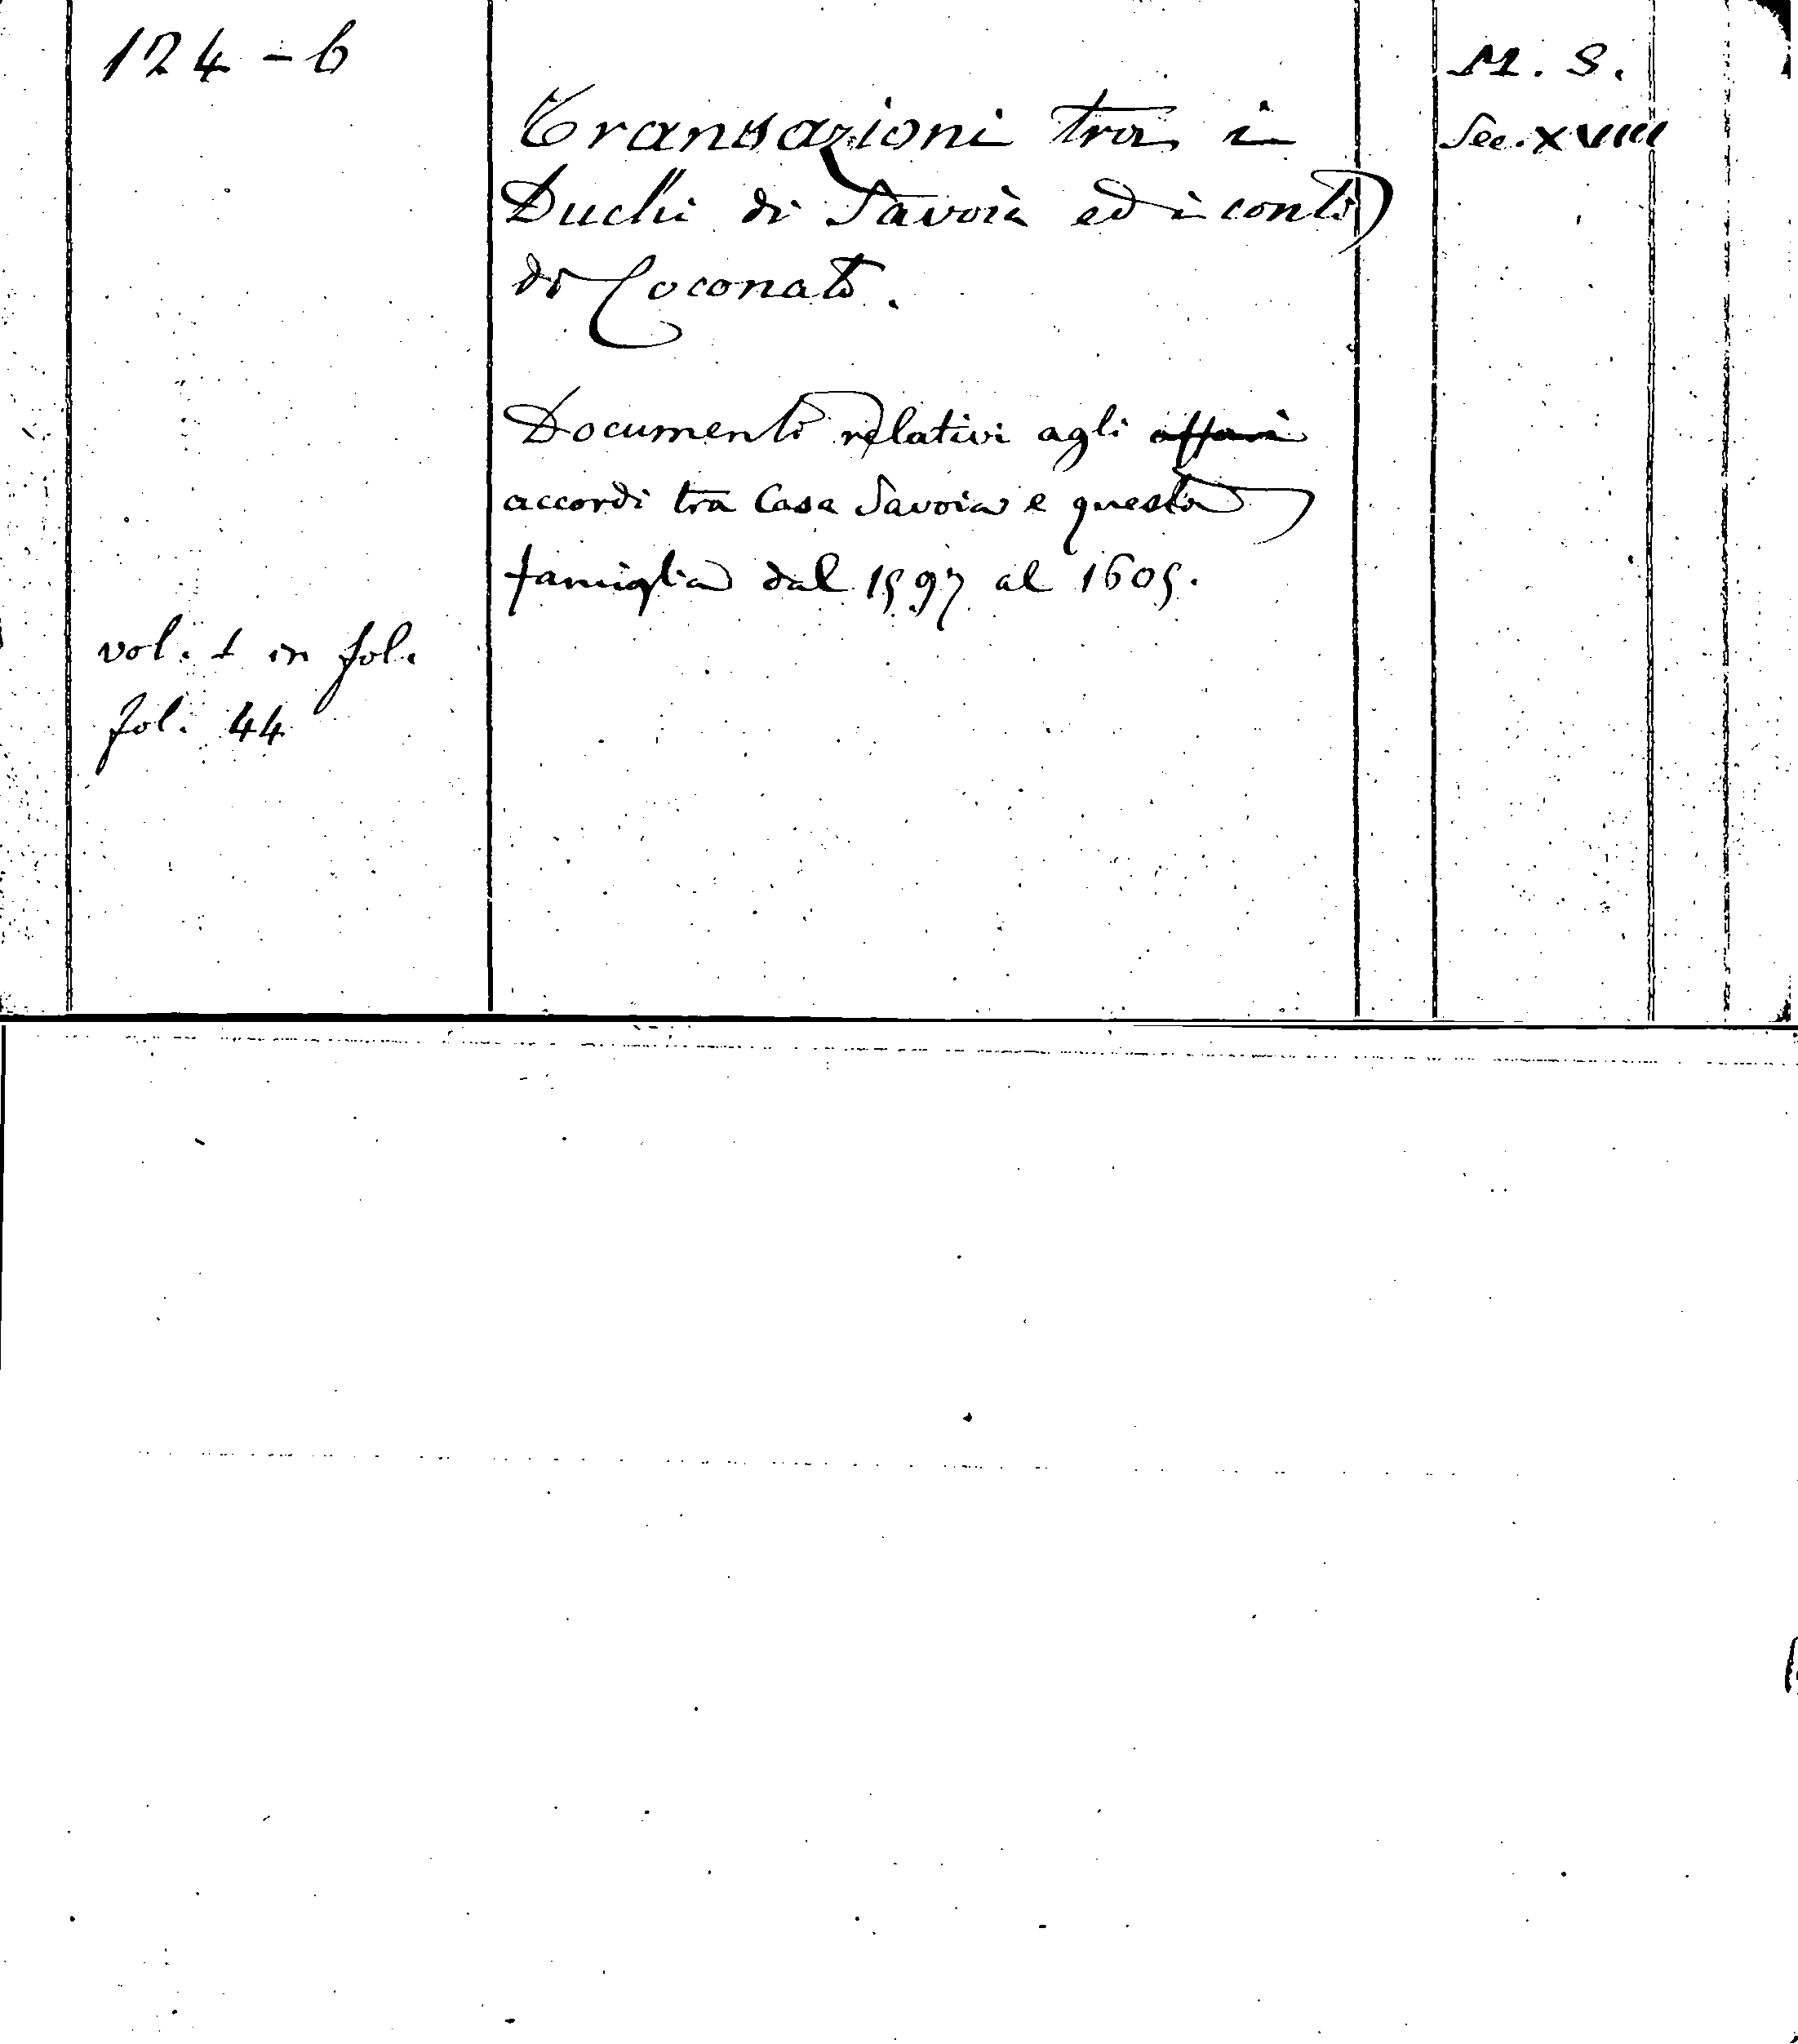 124-6
Transazioni tra i
Duchi di Savoia ed i conti
di Coconato.
Documenti relativi agli affari
accordi tra Casa Savoia e questa
famiglia dal 1597 al 1605.
vol. 1 in fol.
fol. 44
M. S.
Sec. XVIIII